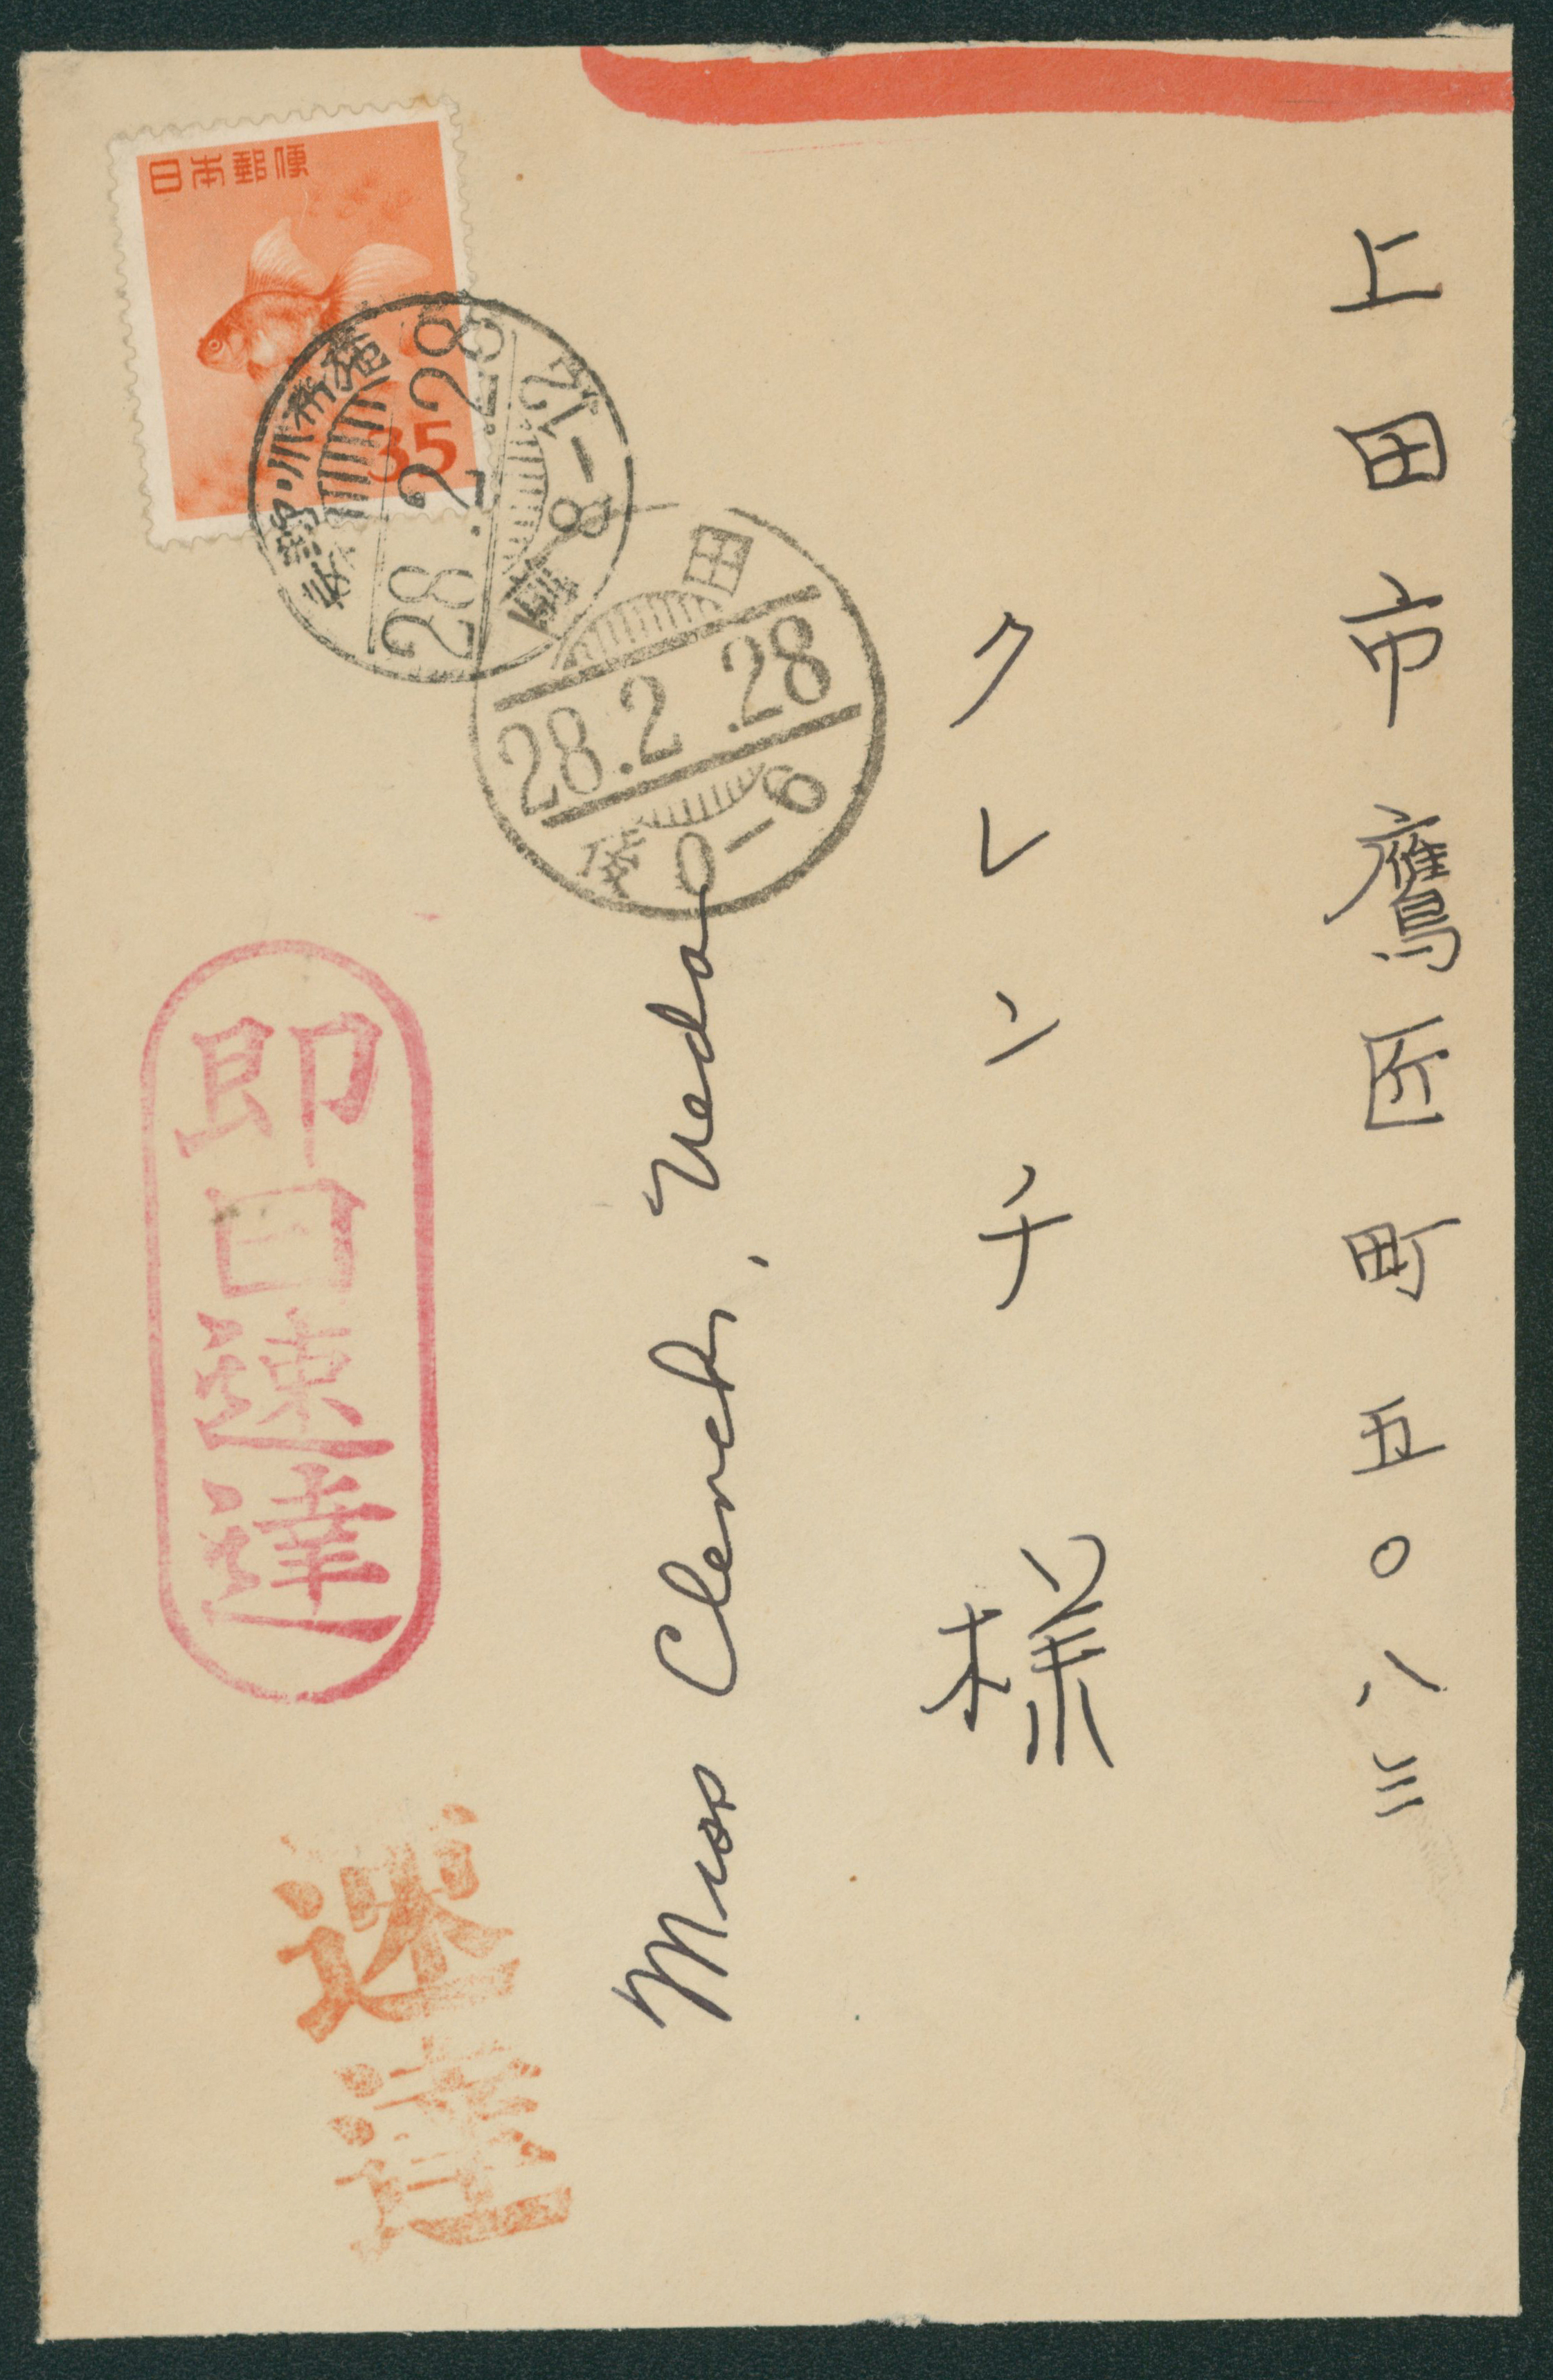 上田市鷹匠町五〇八三
クレンチ様
Miss Clench, Ueda
日本郵便
35
28.2.28
前8-12
田
28.2.28
後0-6
即日速達
速達